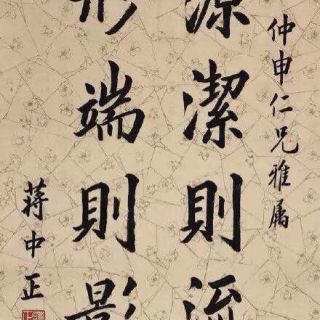 仲申仁兄雅属
源潔則流
形端則影
蔣中正